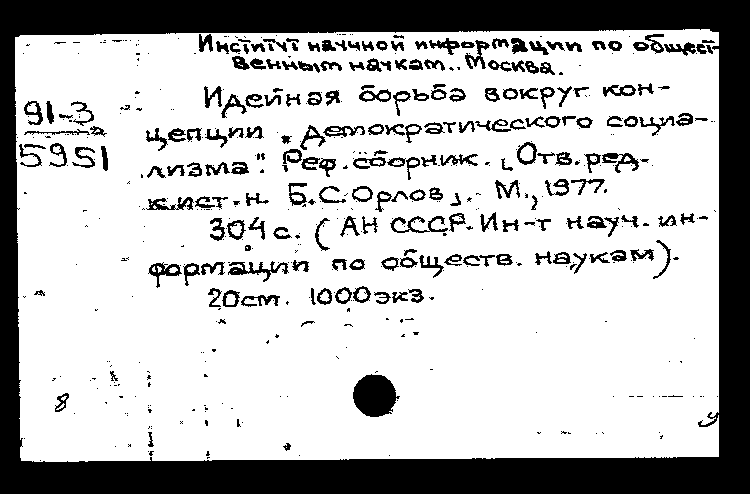 Институт научной информации по общест-
венным наукам. Москва.
Идейная борьба вокруг кон-
91-3
цепции „Демократического социа-
5951
лизма". Реф. сборник. [Отв. ред.
к.ист.н. Б.С. Орлов]. - М., 1977.
304 с. (АН СССР. Ин-т науч. ин-
формации по обществ. наукам).
20см. 1000экз.
8
у